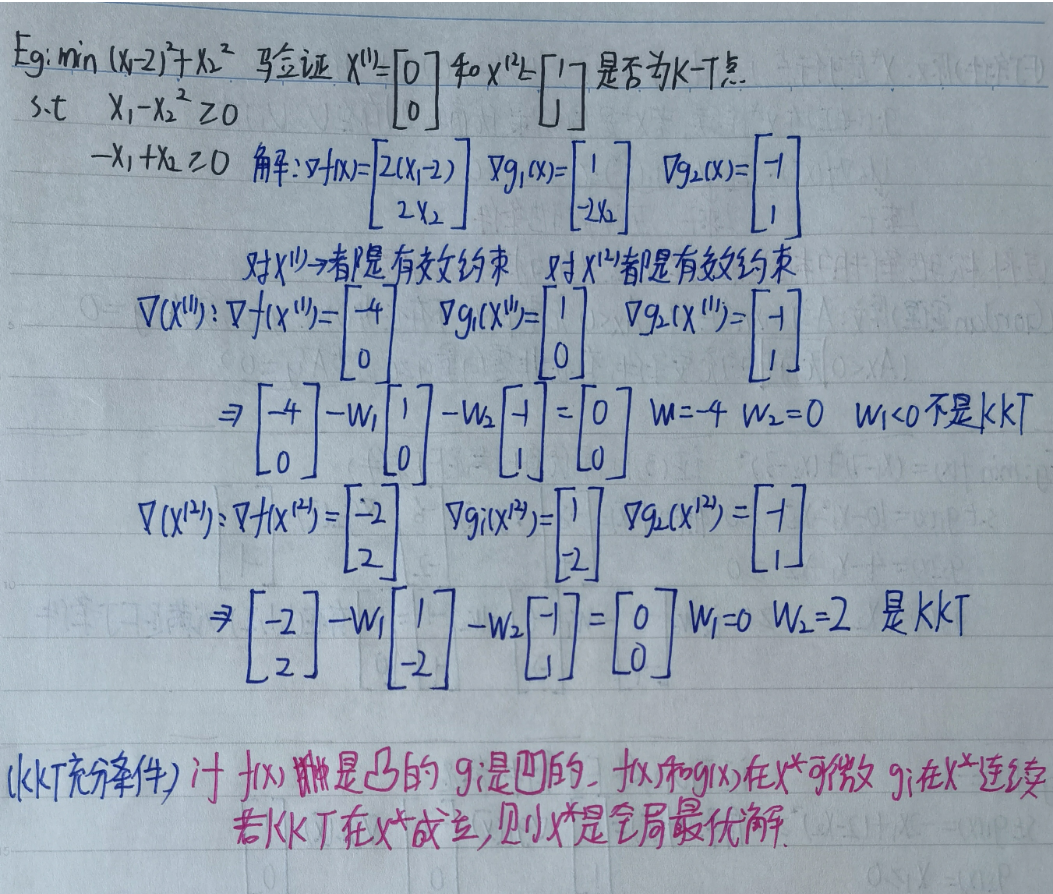 Eg: min (x₁-2)²+x₂² 验证 x⁽¹⁾=[0 0] 和 x⁽²⁾=[1 1] 是否为K-T点
s.t x₁-x₂²≥0
-x₁+x₂≥0 解:∇f(x)=[2(x₁-2) 2x₂] ∇g₁(x)=[1 -2x₂] ∇g₂(x)=[-1 1]
对x⁽¹⁾→都是有效约束 对x⁽²⁾都是有效约束
∇(x⁽¹⁾): ∇f(x⁽¹⁾)=[-4 0] ∇g₁(x⁽¹⁾)=[1 0] ∇g₂(x⁽¹⁾)=[-1 1]
⇒ [-4 0]-w₁[1 0]-w₂[-1 1]=[0 0] w=-4 w₂=0 w₁<0 不是KKT
∇(x⁽²⁾): ∇f(x⁽²⁾)=[-2 2] ∇gᵢ(x⁽²⁾)=[1 -2] ∇g₂(x⁽²⁾)=[-1 1]
⇒ [-2 2]-w₁[1 -2]-w₂[-1 1]=[0 0] w₁=0 w₂=2 是KKT
(KKT充分条件) if f(x) 是凸的 gᵢ是凹的. f(x)和g(x)在x*可微 gᵢ在x*连续
若KKT在x*成立,则x*是全局最优解.